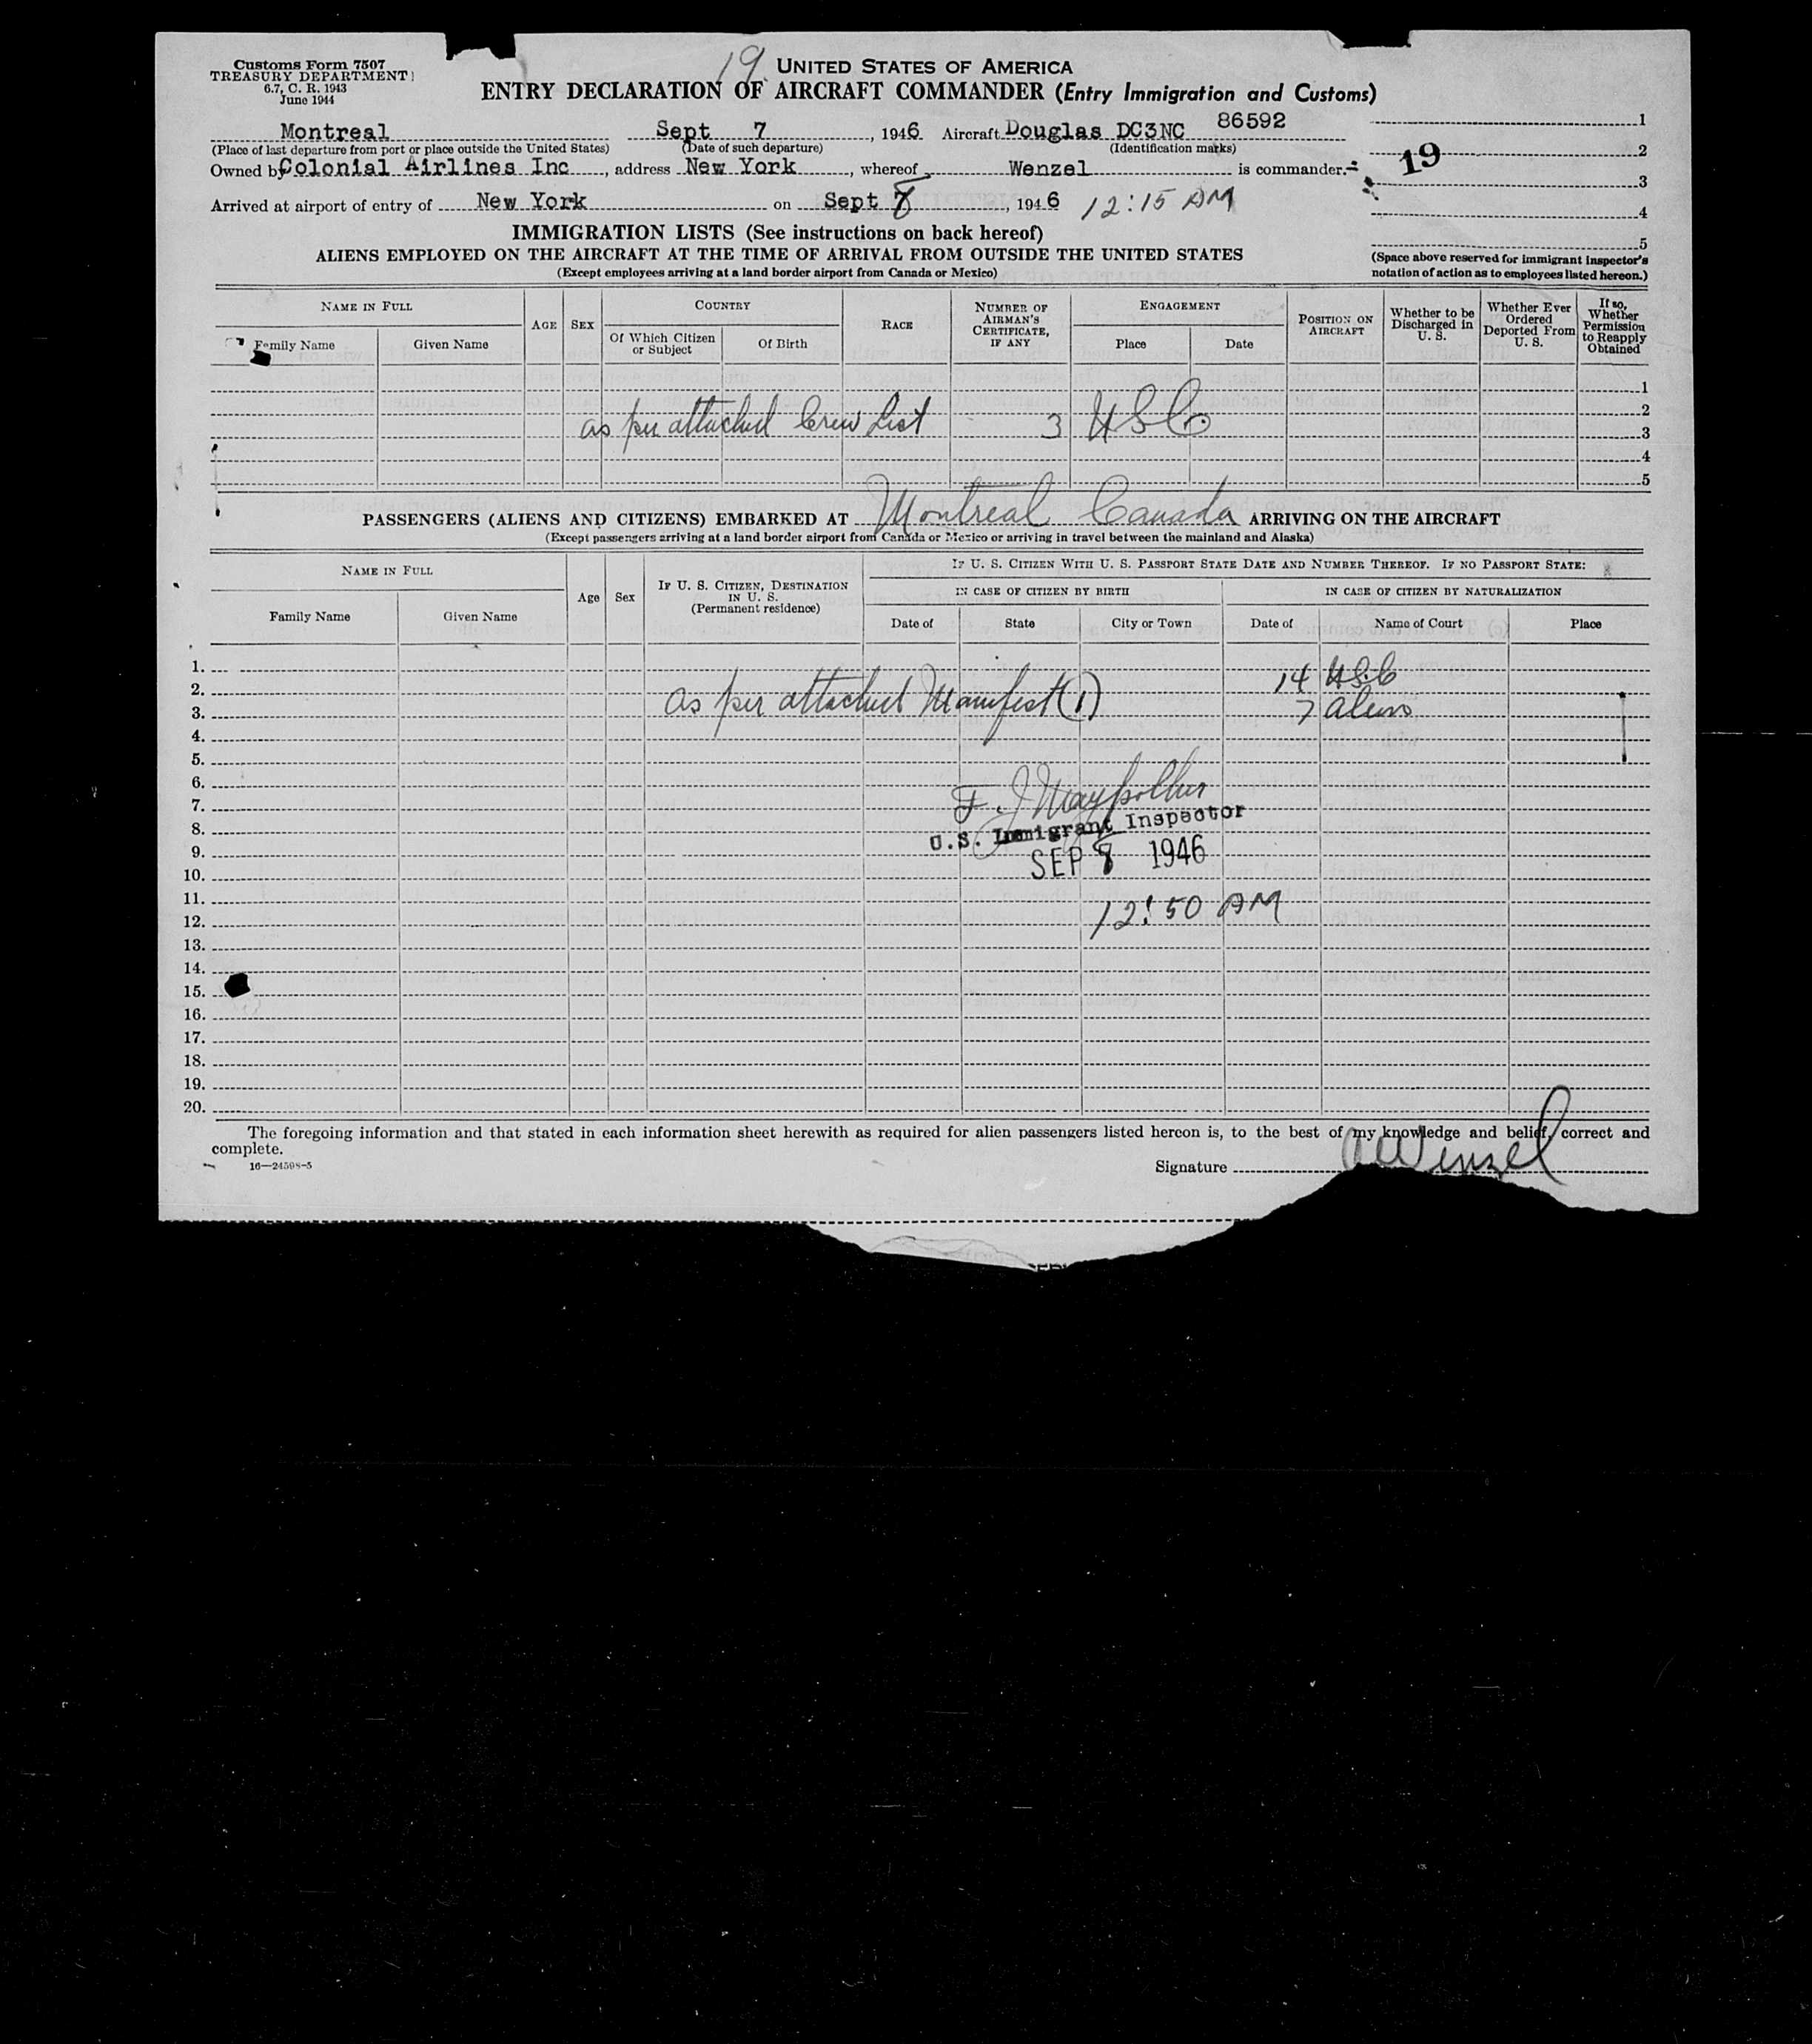 Customs Form 7507
TREASURY DEPARTMENT
6.7, C. R. 1943
June 1944
19.
UNITED STATES OF AMERICA
ENTRY DECLARATION OF AIRCRAFT COMMANDER (Entry Immigration and Customs)
Montreal Sept 7, 1946 Aircraft Douglas DC3NC 86592
(Place of last departure from port or place outside the United States) (Date of such departure) (Identification marks)
Owned by Colonial Airlines Inc, address New York, whereof Wenzel is commander.
Arrived at airport of entry of New York on Sept 8, 1946 12:15 AM
1
2
19
3
4
5
(Space above reserved for immigrant inspector's notation of action as to employees listed hereon.)
IMMIGRATION LISTS (See instructions on back hereof)
ALIENS EMPLOYED ON THE AIRCRAFT AT THE TIME OF ARRIVAL FROM OUTSIDE THE UNITED STATES
(Except employees arriving at a land border airport from Canada or Mexico)
NAME IN FULL
Family Name Given Name
AGE SEX
COUNTRY
Of Which Citizen or Subject Of Birth
RACE
NUMBER OF AIRMAN'S CERTIFICATE, IF ANY
ENGAGEMENT
Place Date
POSITION ON AIRCRAFT
Whether to be Discharged in U. S.
Whether Ever Ordered Deported From U. S.
If so, Whether Permission to Reapply Obtained
1
2
as per attached Crew List 3 USC.
3
4
5
PASSENGERS (ALIENS AND CITIZENS) EMBARKED AT Montreal Canada ARRIVING ON THE AIRCRAFT
(Except passengers arriving at a land border airport from Canada or Mexico or arriving in travel between the mainland and Alaska)
NAME IN FULL
Family Name Given Name
Age Sex
IF U. S. CITIZEN, DESTINATION IN U. S.
(Permanent residence)
IF U. S. CITIZEN WITH U. S. PASSPORT STATE DATE AND NUMBER THEREOF. IF NO PASSPORT STATE:
IN CASE OF CITIZEN BY BIRTH IN CASE OF CITIZEN BY NATURALIZATION
Date of State City or Town Date of Name of Court Place
1.
14 USC
2.
as per attached Manifest (1)
3.
7 aliens
4.
5.
6.
7.
8.
U.S. Immigrant Inspector
9.
SEP 8 1946
10.
11.
12:50 AM
12.
13.
14.
15.
16.
17.
18.
19.
20.
The foregoing information and that stated in each information sheet herewith as required for alien passengers listed hereon is, to the best of my knowledge and belief, correct and
complete.
16—24598-5
Signature Wenzel